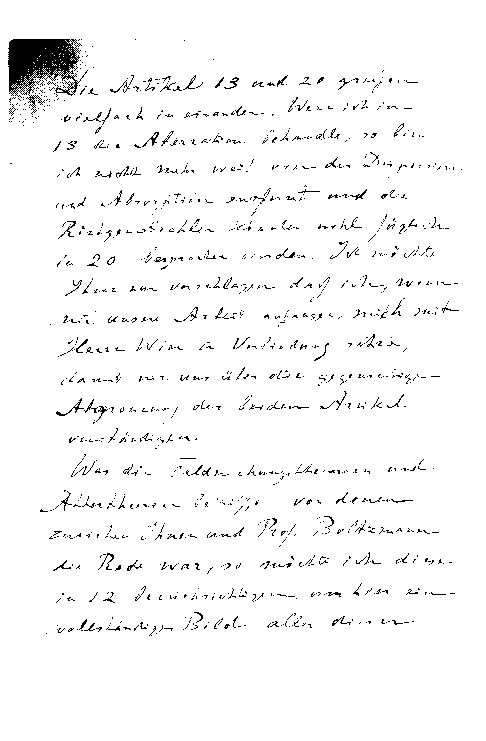 Die Artikel 13 und 20 greifen
vielfach in einander. Wenn ich in
13 die Aberration behandle, so bin
ich nicht mehr weit von der Dispersion
und Absorption entfernt und die
Röntgenstrahlen können wohl füglich
in 20 besprochen werden. Ich möchte
Ihnen nun vorschlagen daß ich, wenn
wir unsere Arbeit anfangen, mich mit
Herrn Wien in Verbindung setze,
damit wir uns über die gegenseitige
Abgrenzung der beiden Artikel
verständigen.
Was die Felddrehungstheorieen und
Aethertheorieen betrifft von denen
zwischen Ihnen und Prof. Boltzmann
die Rede war, so möchte ich diese
in 12 berücksichtigen um hier ein
vollständiges Bild aller dieser